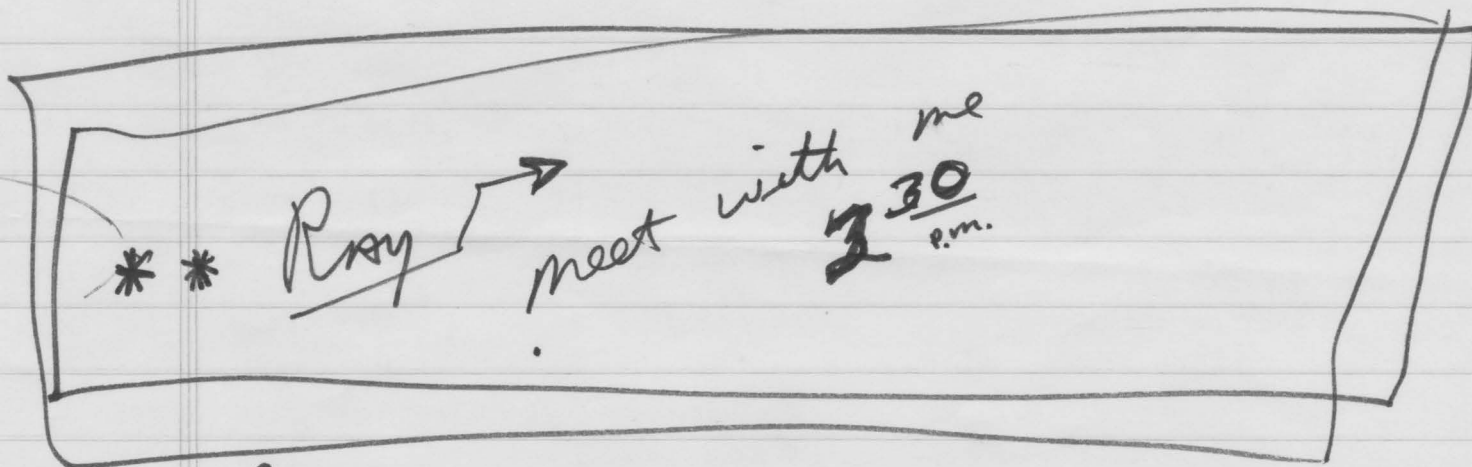 ** Ray → meet with me
30 p.m.